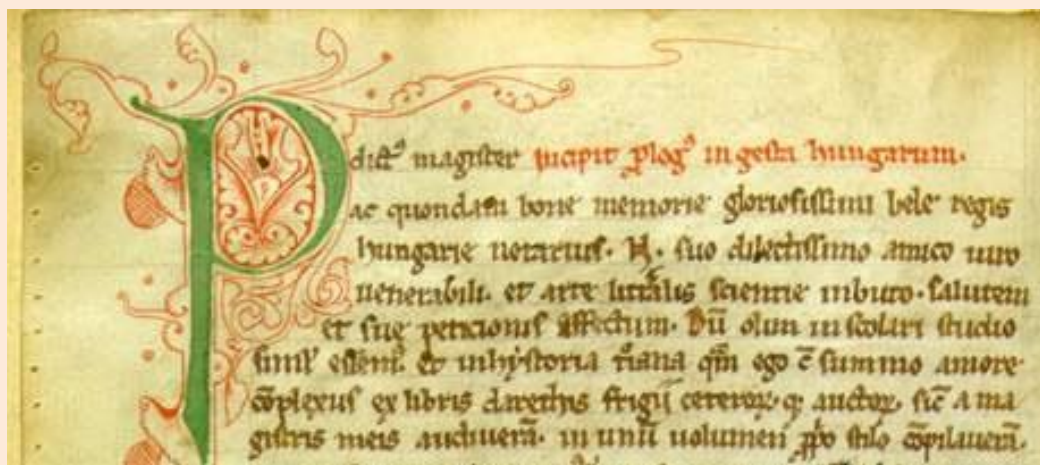 P dict᷒ magister incipit ꝓlog᷒ in gesta hungarum.
ac quondam bone memorie gloriosissimi bele regis
hungarie notarius. suo dilectissimo amico uiro
uenerabili. et arte litt̾alis scientie inbuto. salutem
et sue peticionis effectum. Dū olim in scolari studio
simul̾ essem. et in hystoria t̾iana q̄m ego c̄ summo amore
cōplexus ex libris darethis frigii ceteroꝝ. q̨ auctoꝝ. sic̄ a ma
gistris meis audiuerā. in unū uolumen ꝓp̾o stilo cōpilauerā.